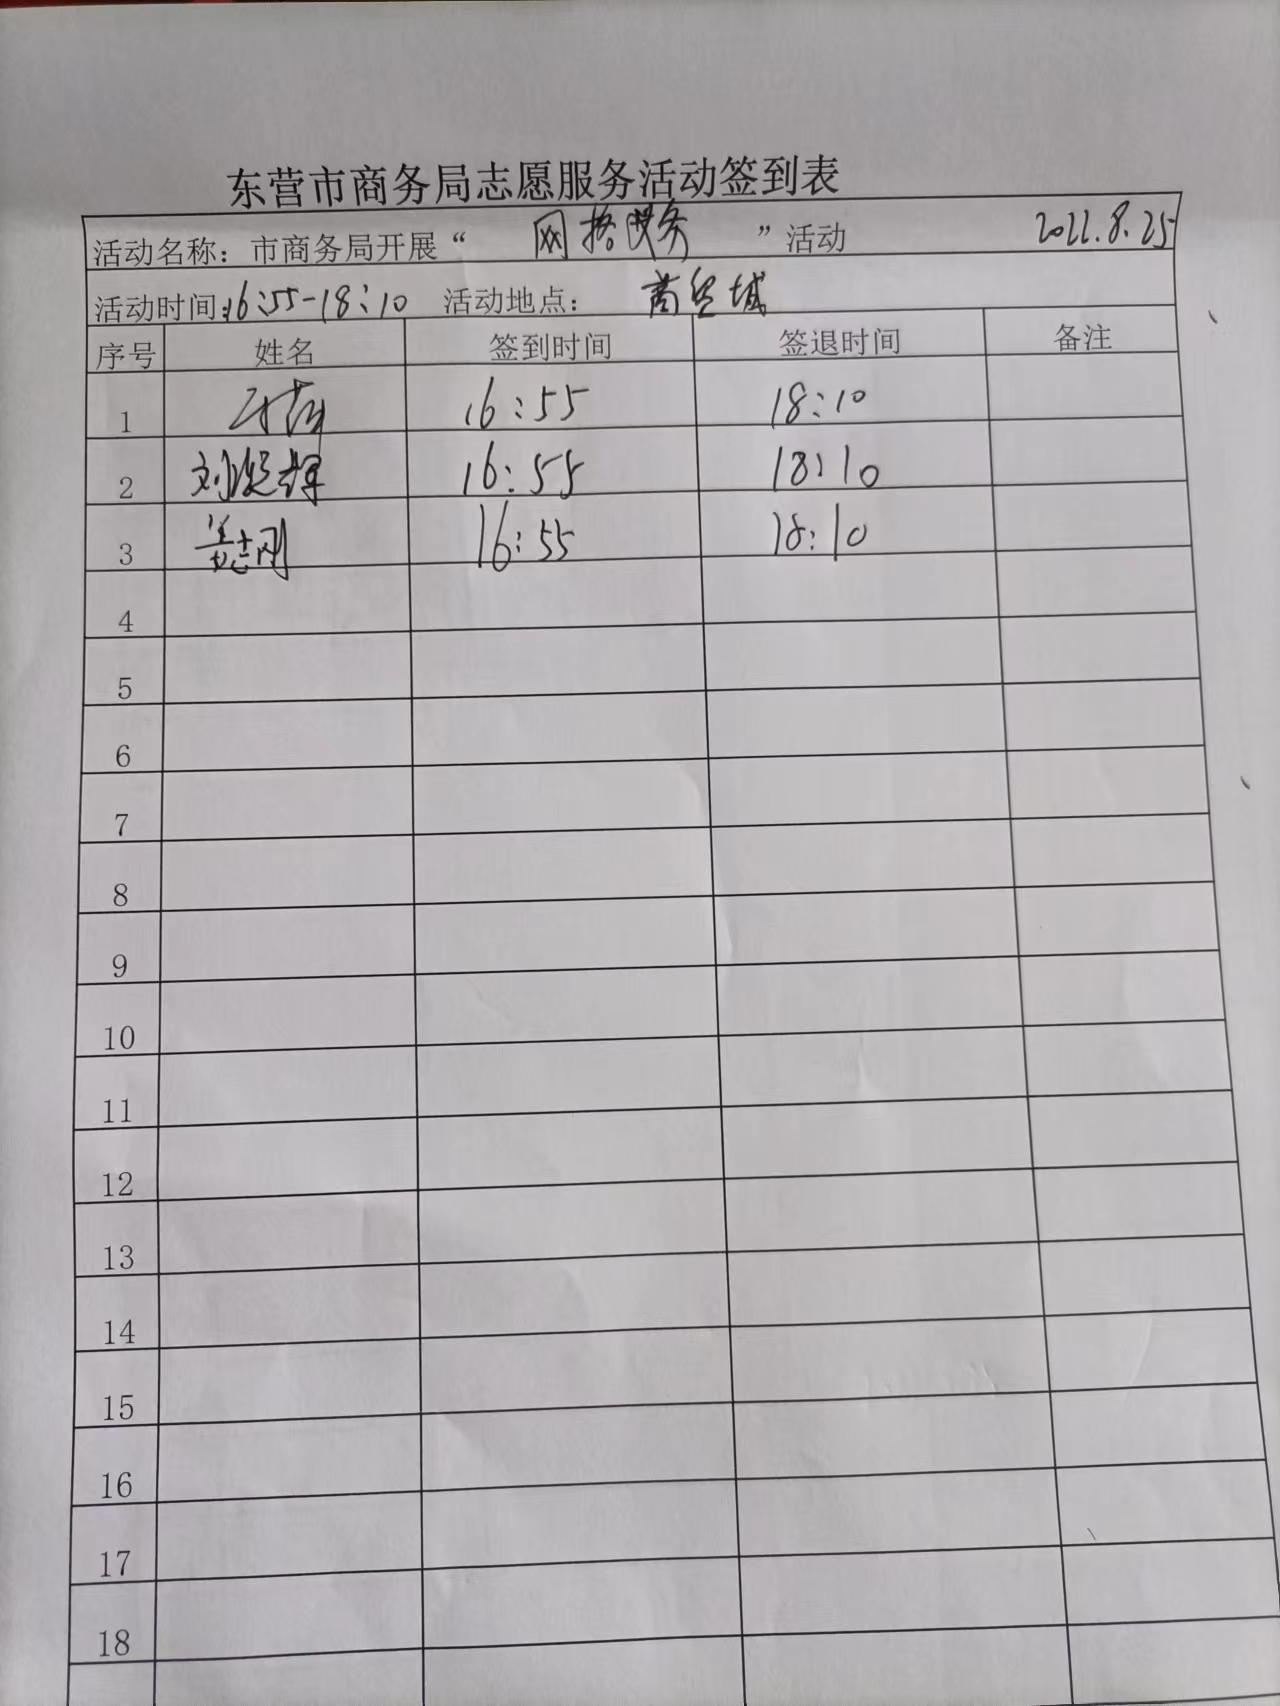 东营市商务局志愿服务活动签到表
活动名称：市商务局开展“网格服务”活动 2022.8.25
活动时间：16:55-18:10 活动地点：商贸城
序号 姓名 签到时间 签退时间 备注
1 16:55 18:10
2 刘 16:55 18:10
3 姜志刚 16:55 18:10
4
5
6
7
8
9
10
11
12
13
14
15
16
17
18